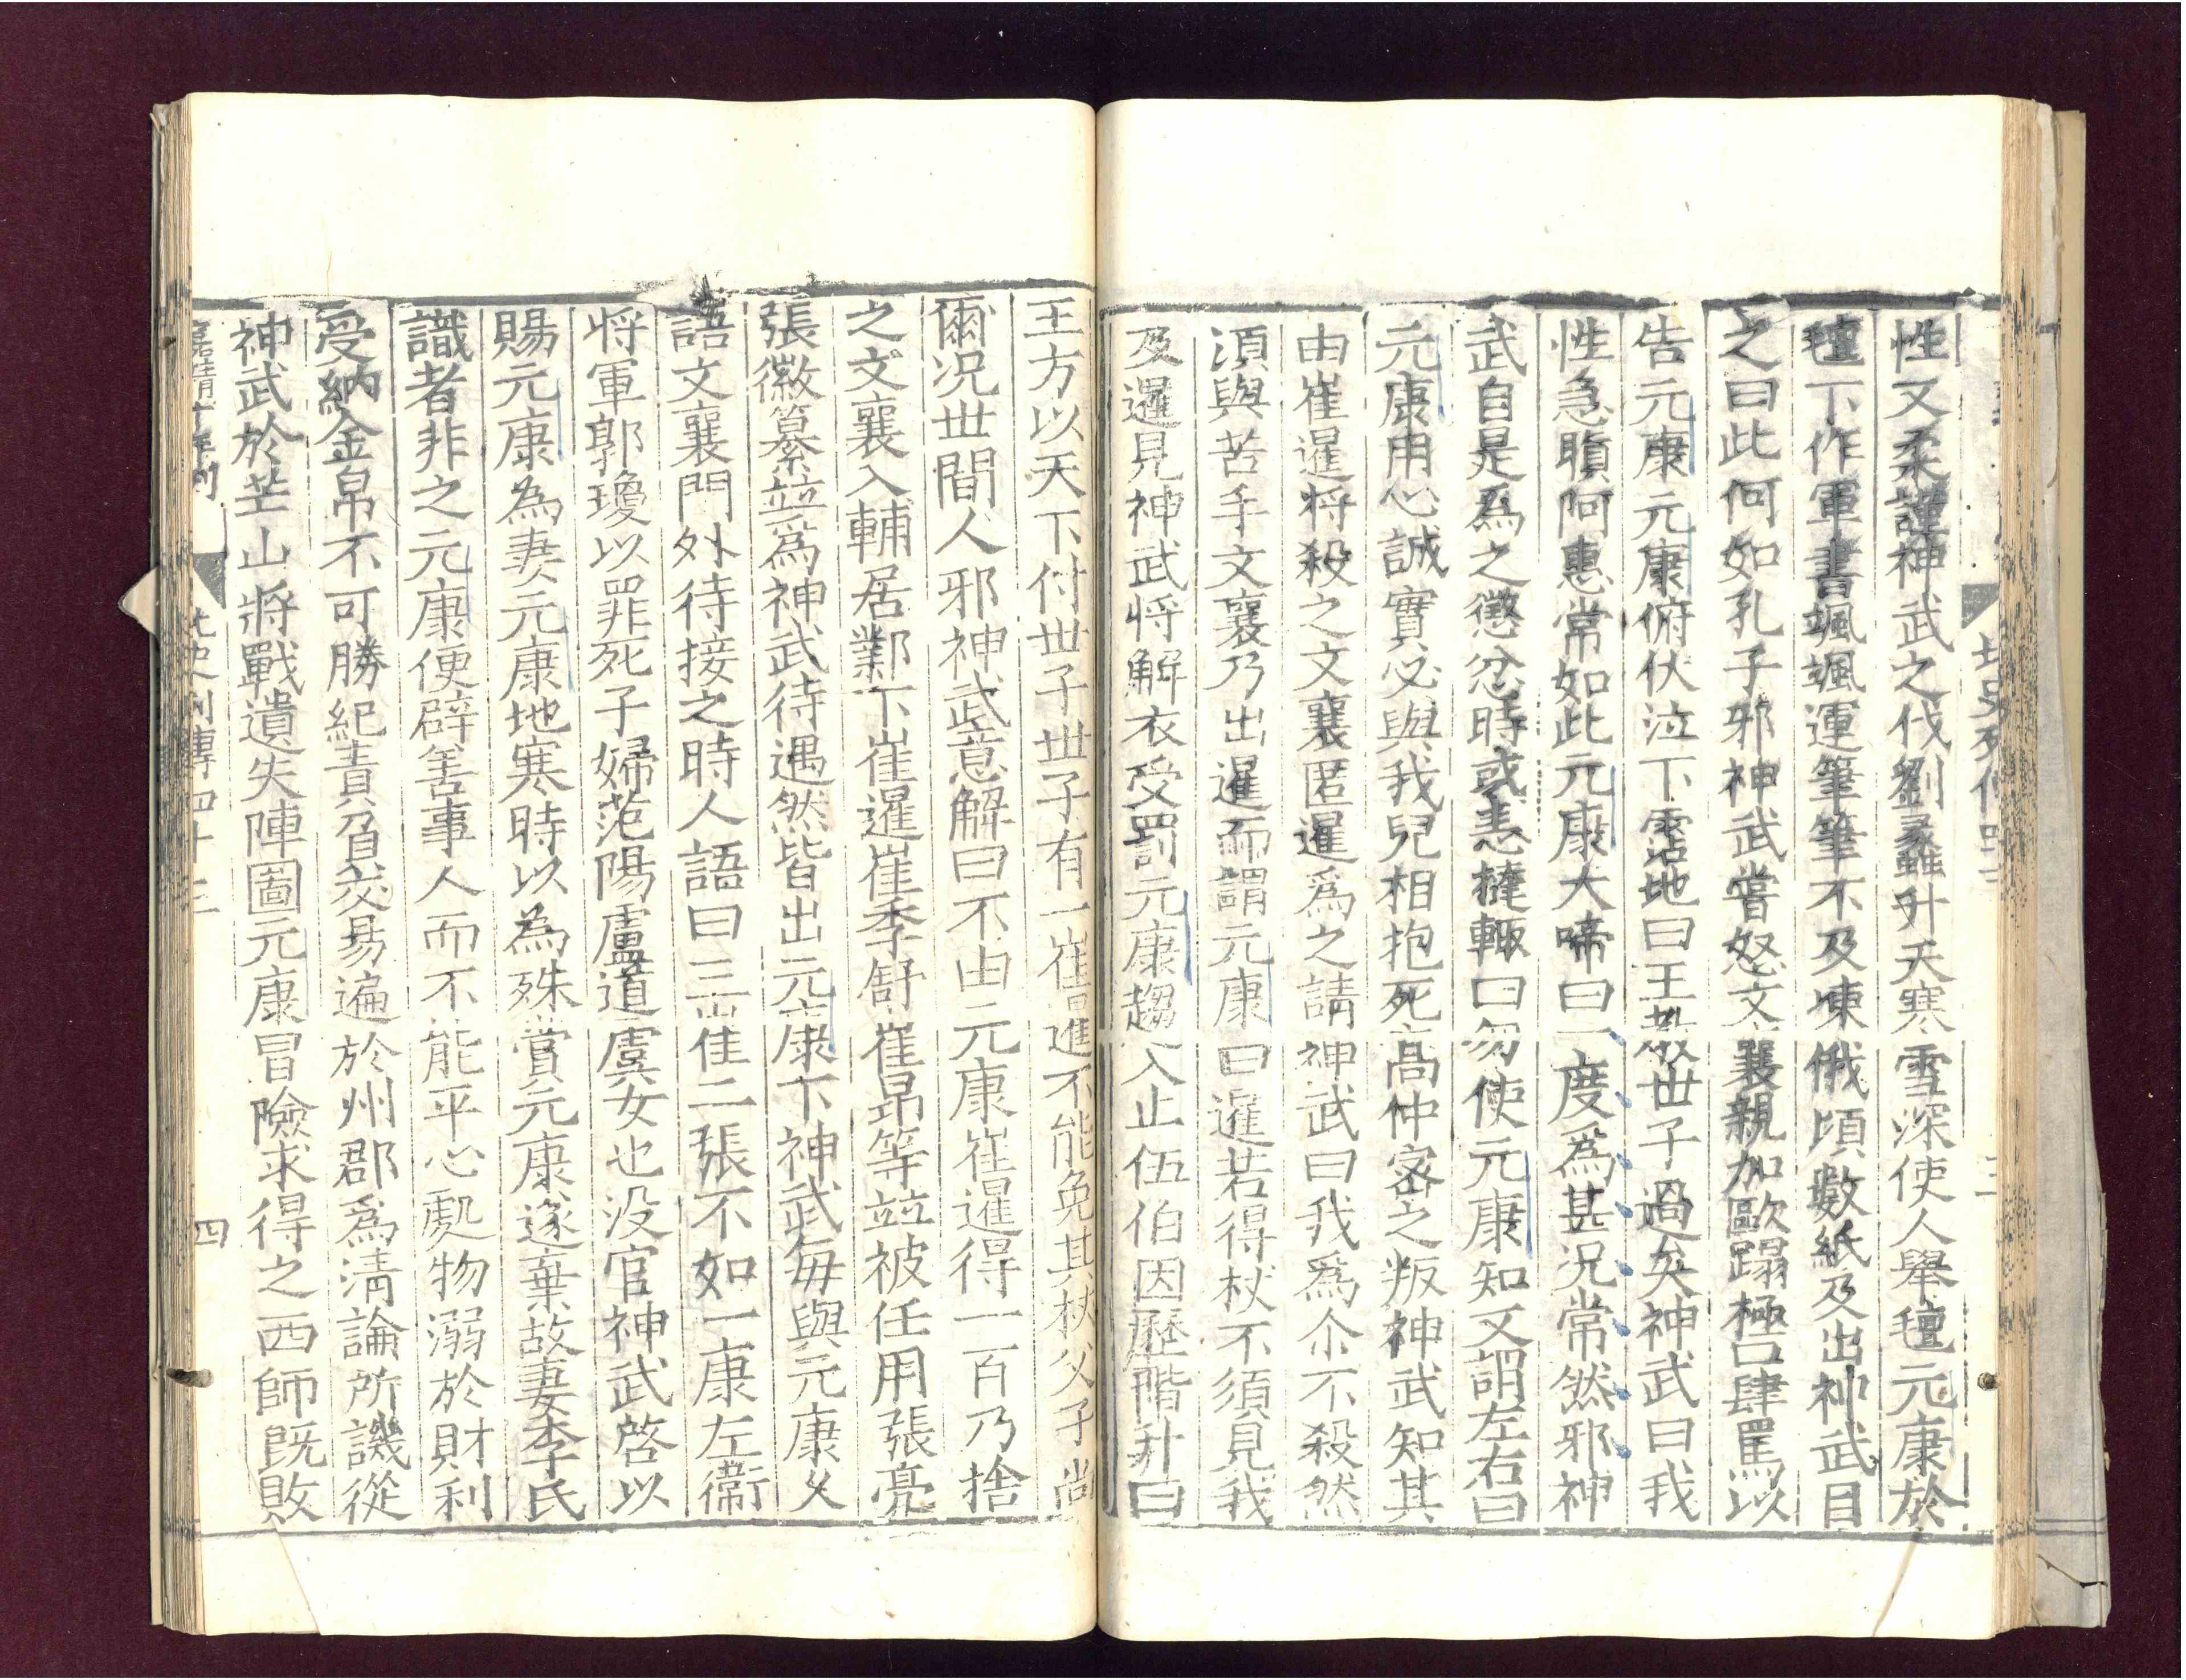 北史列傳四十三
三
性又柔謹神武之伐劉蠡升天寒雪深使人舉氊元康於
氊下作軍書颯颯運筆筆不及凍俄頃數紙及出神武目
之曰此何如孔子邪神武嘗怒文襄親加歐蹋極口肆罵以
告元康元康俯伏泣下霑地曰王教世子過矣神武曰我
性急瞋阿惠常如此元康大啼曰一度爲甚况常然邪神
武自是爲之懲忿時或恚撻輙曰勿使元康知又謂左右曰
元康用心誠實必與我兒相抱死高仲密之叛神武知其
由崔暹将殺之文襄匿暹爲之請神武曰我爲尒不殺然
須與苦手文襄乃出暹而謂元康曰暹若得杖不須見我
及暹見神武将解衣受罰元康趨入止伍伯因歷階升曰
王方以天下付世子世子有一崔暹不能免其杖父子尚
爾况世間人邪神武意解曰不由元康崔暹得一百乃捨
之文襄入輔居鄴下崔暹崔季舒崔昂等竝被任用張亮
張徽纂竝爲神武待遇然皆出元康下神武每與元康久
語文襄門外待接之時人語曰三崔二張不如一康左衞
将軍郭瓊以罪死子婦范陽盧道虞女也没官神武啓以
賜元康為妻元康地寒時以為殊賞元康遂棄故妻李氏
識者非之元康便辟善事人而不能平心處物溺於財利
受納金帛不可勝紀責負交易遍於州郡爲清論所譏從
神武於芒山將戰遺失陣圖元康冒險求得之西師旣敗
嘉靖十年刊
北史列傳四十三
四